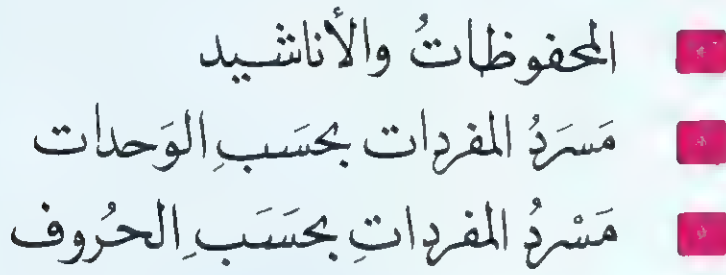 المحفوظاتُ والأناشيد
مَسرَدُ المفردات بحسَبِ الوَحدات
مَسْردُ المفرداتِ بحَسَبِ الحُروف